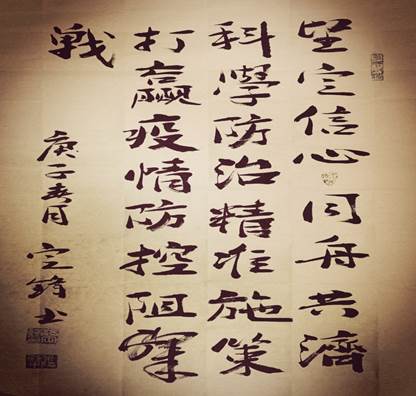 坚定信心同舟共濟
科學防治精准施策
打赢疫情防控阻擊
戰
庚子春月 定鋒书